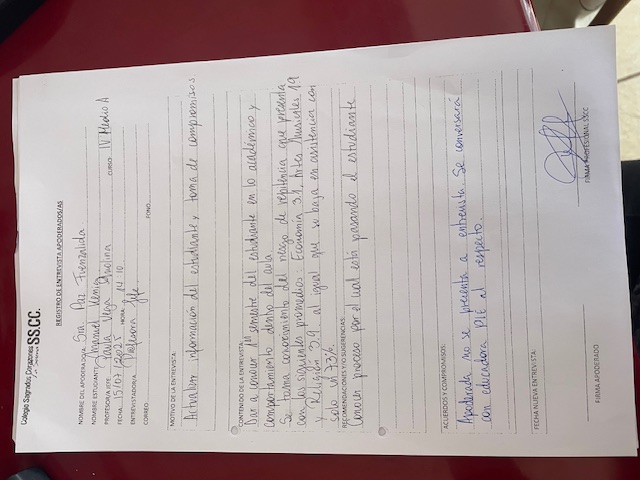 Colegio Sagrados Corazones
SS.CC.
REGISTRO DE ENTREVISTA APODERADOS/AS
NOMBRE DEL APODERADO/A: Sra Paz Fuenzalida
NOMBRE ESTUDIANTE: Manuel
PROFESOR/A JEFE: Paula Vega CURSO: IV Medio A
FECHA: 15/07/2025 HORA: 14:10
ENTREVISTADOR/A Profesora Jefe
CORREO: FONO:
MOTIVO DE LA ENTREVISTA:
Actualizar información del estudiante y toma de compromisos
CONTENIDO DE LA ENTREVISTA:
Dar a conocer 1er semestre del estudiante en lo académico y
comportamiento dentro del aula
Se toma conocimiento del riesgo de repitencia que presenta
con los siguientes promedios: Economía 3,1, Artes Musicales 1,9
y Religión 3,9 al igual que su baja en asistencia con
solo un 73%.
RECOMENDACIONES Y/O SUGERENCIAS:
Conocer proceso por el cual está pasando el estudiante
ACUERDOS Y COMPROMISOS:
Apoderada no se presenta a entrevista. Se conversará
con educadora PIE al respecto.
FECHA NUEVA ENTREVISTA:
FIRMA APODERADO FIRMA PROFESIONAL SSCC